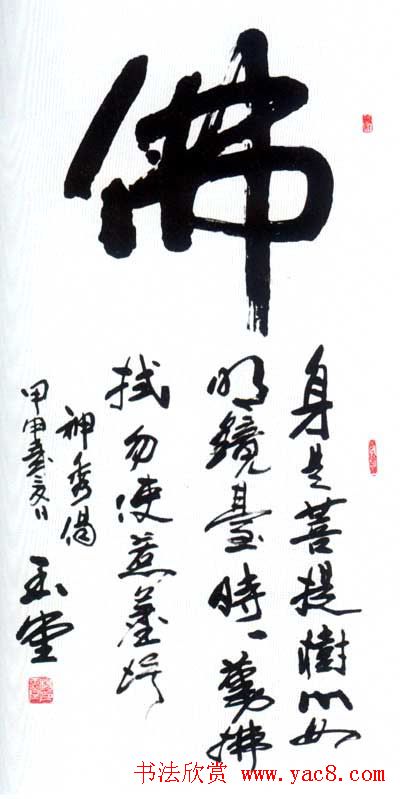 佛
身是菩提樹心如
明鏡臺時丶勤拂
拭勿使惹塵埃
神秀偈
甲申歲
玉堂
书法欣赏 www.yac8.com